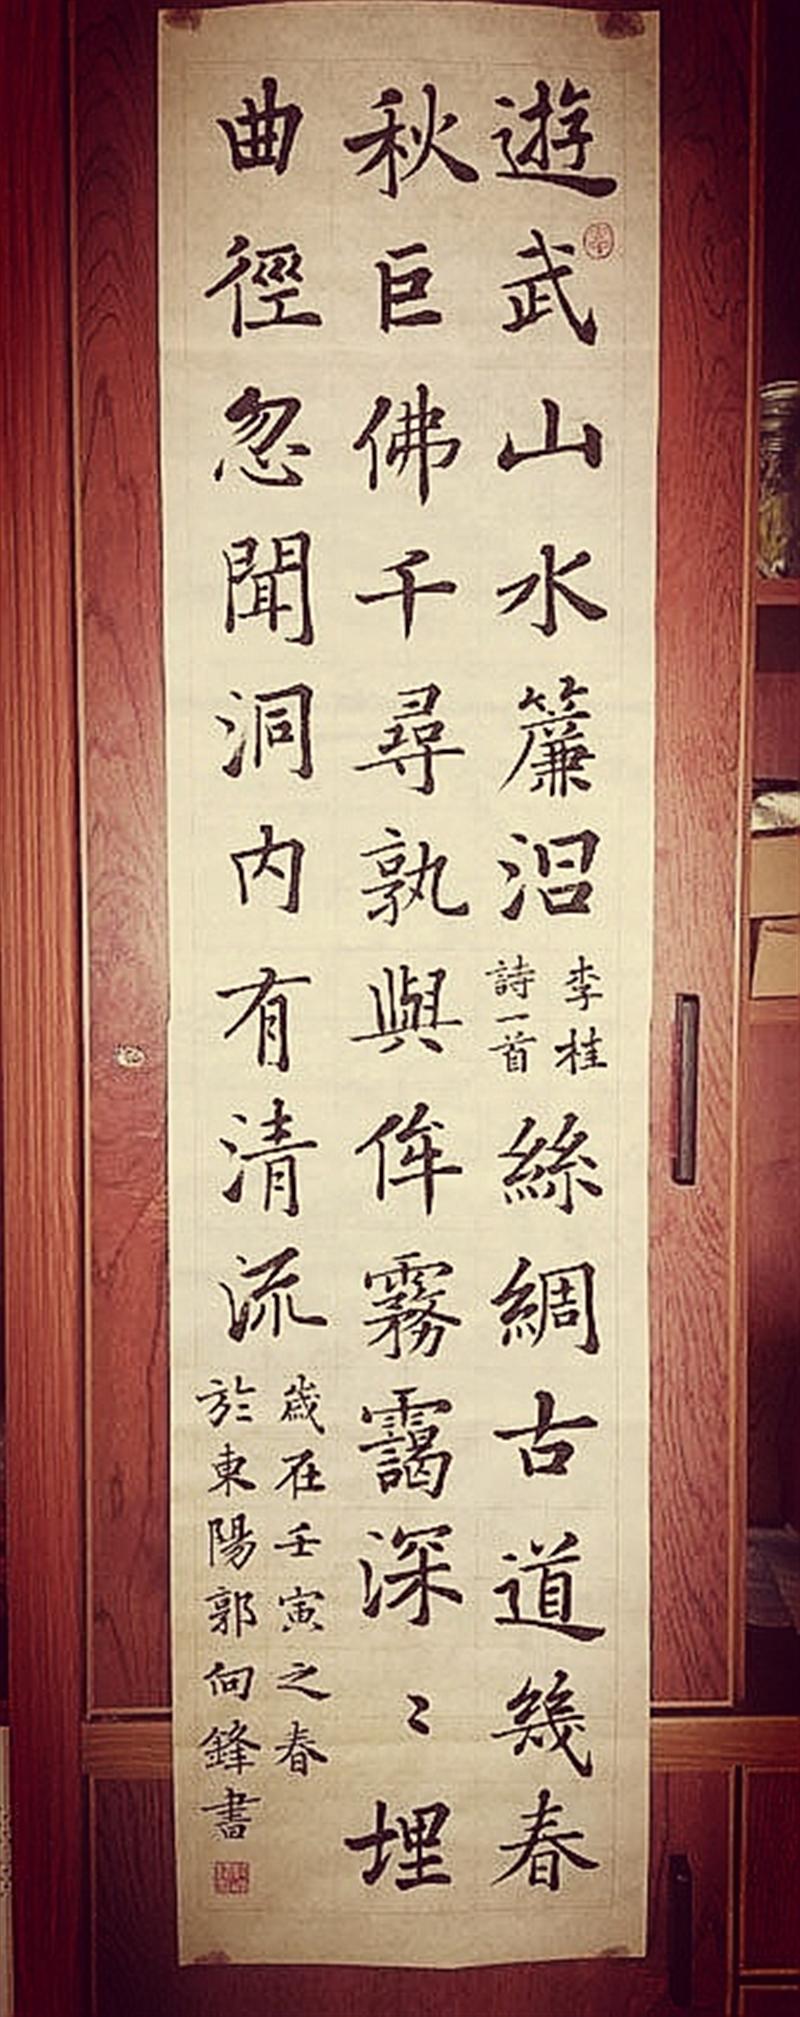 遊武山水簾洞
李桂
詩一首
絲綢古道幾春
秋巨佛千尋孰與侔霧靄深〻埋
曲徑忽聞洞內有清流
歲在壬寅之春
於東陽郭向鋒書